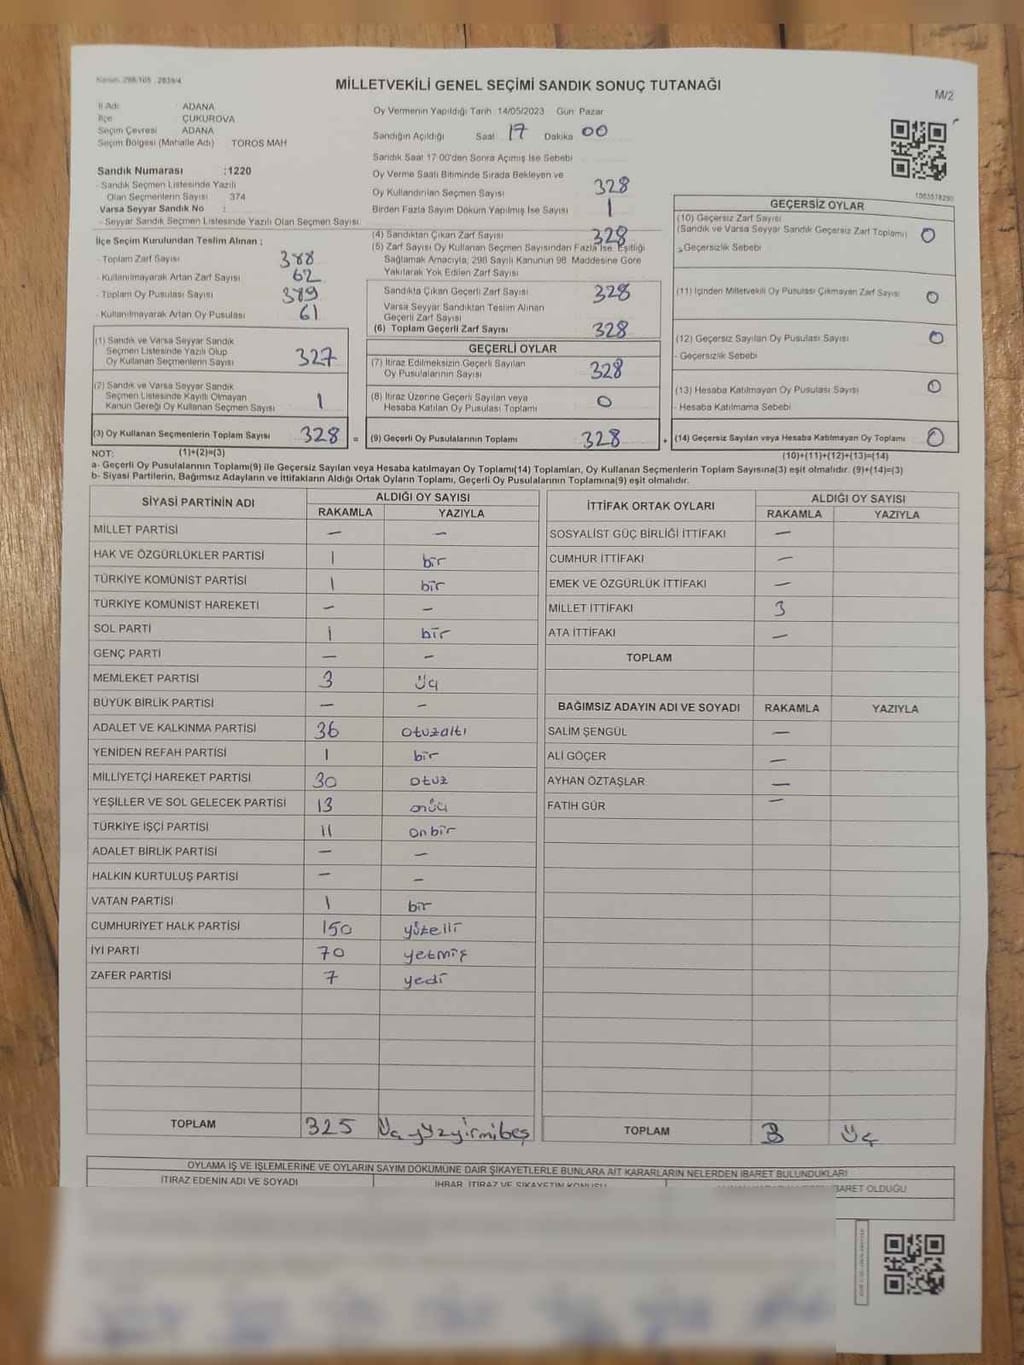 MİLLETVEKİLİ GENEL SEÇİMİ SANDIK SONUÇ TUTANAĞI
M/2
İl Adı ADANA
İlçe ÇUKUROVA
Seçim Çevresi ADANA
Seçim Bölgesi (Mahalle Adı) TOROS MAH
Sandık Numarası :1220
- Sandık Seçmen Listesinde Yazılı
Olan Seçmenlerin Sayısı 374
Varsa Seyyar Sandık No :
- Seyyar Sandık Seçmen Listesinde Yazılı Olan Seçmen Sayısı
İlçe Seçim Kurulundan Teslim Alınan ;
- Toplam Zarf Sayısı 388
- Kullanılmayarak Artan Zarf Sayısı 62
- Toplam Oy Pusulası Sayısı 389
- Kullanılmayarak Artan Oy Pusulası 61
(1) Sandık ve Varsa Seyyar Sandık
Seçmen Listesinde Yazılı Olup
Oy Kullanan Seçmenlerin Sayısı 327
(2) Sandık ve Varsa Seyyar Sandık
Seçmen Listesinde Kayıtlı Olmayan
Kanun Gereği Oy Kullanan Seçmen Sayısı 1
(3) Oy Kullanan Seçmenlerin Toplam Sayısı 328 =
Oy Vermenin Yapıldığı Tarih 14/05/2023 Gün Pazar
Sandığın Açıldığı Saat 17 Dakika 00
Sandık Saat 17:00'den Sonra Açımış İse Sebebi
Oy Verme Saati Bitiminde Sırada Bekleyen ve
Oy Kullandırılan Seçmen Sayısı 328
Birden Fazla Sayım Döküm Yapılmış İse Sayısı 1
(4) Sandıktan Çıkan Zarf Sayısı 328
(5) Zarf Sayısı Oy Kullanan Seçmen Sayısından Fazla İse, Eşitliği
Sağlamak Amacıyla, 298 Sayılı Kanunun 98 Maddesine Göre
Yakılarak Yok Edilen Zarf Sayısı
Sandıkta Çıkan Geçerli Zarf Sayısı 328
Varsa Seyyar Sandıktan Teslim Alınan
Geçerli Zarf Sayısı
(6) Toplam Geçerli Zarf Sayısı 328
GEÇERLİ OYLAR
(7) İtiraz Edilmeksizin Geçerli Sayılan
Oy Pusulalarının Sayısı 328
(8) İtiraz Üzerine Geçerli Sayılan veya
Hesaba Katılan Oy Pusulası Toplamı 0
(9) Geçerli Oy Pusulalarının Toplamı 328 +
GEÇERSİZ OYLAR
(10) Geçersiz Zarf Sayısı
(Sandık ve Varsa Seyyar Sandık Geçersiz Zarf Toplamı) 0
- Geçersizlik Sebebi
(11) İçinden Milletvekili Oy Pusulası Çıkmayan Zarf Sayısı 0
(12) Geçersiz Sayılan Oy Pusulası Sayısı 0
- Geçersizlik Sebebi
(13) Hesaba Katılmayan Oy Pusulası Sayısı 0
- Hesaba Katılmama Sebebi
(14) Geçersiz Sayılan veya Hesaba Katılmayan Oy Toplamı 0
NOT: (1)+(2)=(3) (10)+(11)+(12)+(13)=(14)
a- Geçerli Oy Pusulalarının Toplamı(9) ile Geçersiz Sayılan veya Hesaba katılmayan Oy Toplamı(14) Toplamları, Oy Kullanan Seçmenlerin Toplam Sayısına(3) eşit olmalıdır. (9)+(14)=(3)
b- Siyasi Partilerin, Bağımsız Adayların ve İttifakların Aldığı Ortak Oyların Toplamı, Geçerli Oy Pusulalarının Toplamına(9) eşit olmalıdır.
SİYASİ PARTİNİN ADI ALDIĞI OY SAYISI
RAKAMLA YAZIYLA
MİLLET PARTİSİ — —
HAK VE ÖZGÜRLÜKLER PARTİSİ 1 bir
TÜRKİYE KOMÜNİST PARTİSİ 1 bir
TÜRKİYE KOMÜNİST HAREKETİ — —
SOL PARTİ 1 bir
GENÇ PARTİ — —
MEMLEKET PARTİSİ 3 üç
BÜYÜK BİRLİK PARTİSİ — —
ADALET VE KALKINMA PARTİSİ 36 otuzaltı
YENİDEN REFAH PARTİSİ 1 bir
MİLLİYETÇİ HAREKET PARTİSİ 30 otuz
YEŞİLLER VE SOL GELECEK PARTİSİ 13 onüç
TÜRKİYE İŞÇİ PARTİSİ 11 onbir
ADALET BİRLİK PARTİSİ — —
HALKIN KURTULUŞ PARTİSİ — —
VATAN PARTİSİ 1 bir
CUMHURİYET HALK PARTİSİ 150 yüzelli
İYİ PARTİ 70 yetmiş
ZAFER PARTİSİ 7 yedi
TOPLAM 325 Üçyüzyirmibeş
İTTİFAK ORTAK OYLARI ALDIĞI OY SAYISI
RAKAMLA YAZIYLA
SOSYALİST GÜÇ BİRLİĞİ İTTİFAKI —
CUMHUR İTTİFAKI —
EMEK VE ÖZGÜRLÜK İTTİFAKI —
MİLLET İTTİFAKI 3
ATA İTTİFAKI —
TOPLAM
BAĞIMSIZ ADAYIN ADI VE SOYADI RAKAMLA YAZIYLA
SALİM ŞENGÜL —
ALİ GÖÇER —
AYHAN ÖZTAŞLAR —
FATİH GÜR —
TOPLAM 3 üç
OYLAMA İŞ VE İŞLEMLERİNE VE OYLARIN SAYIM DÖKÜMÜNE DAİR ŞİKAYETLERLE BUNLARA AİT KARARLARIN NELERDEN İBARET BULUNDUKLARI
İTİRAZ EDENİN ADI VE SOYADI İHBAR, İTİRAZ VE ŞİKAYETİN KONUSU İBARET OLDUĞU